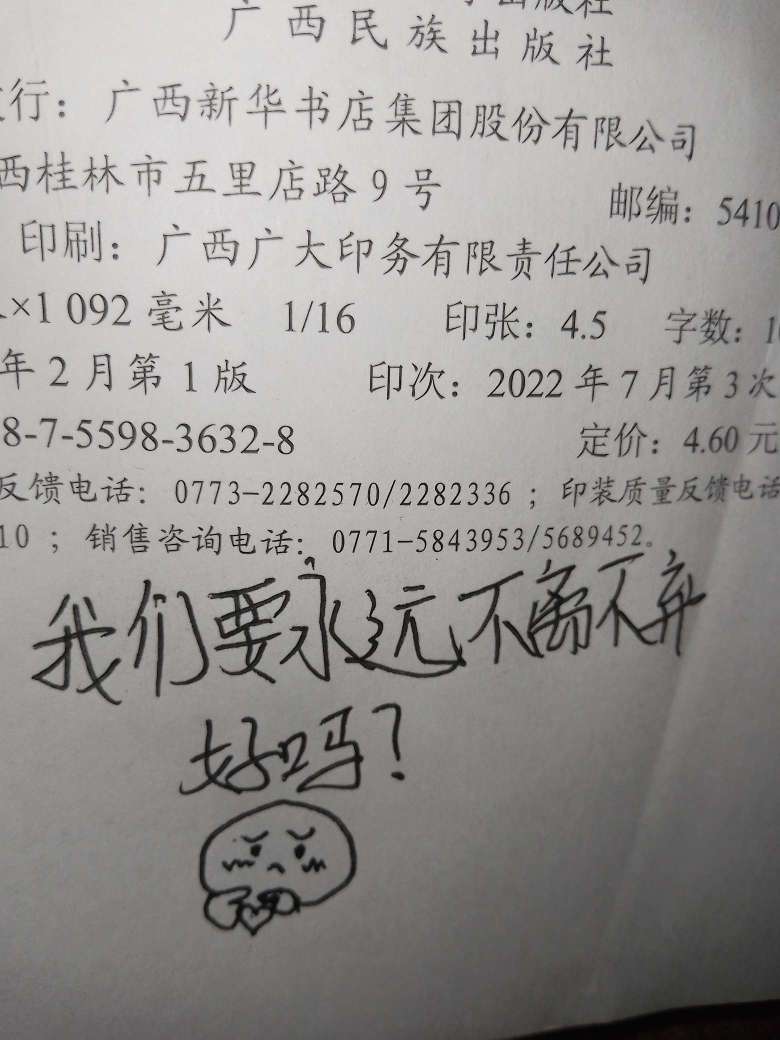 出版社
广西民族出版社
行：广西新华书店集团股份有限公司
西桂林市五里店路9号 邮编：5410
印刷：广西广大印务有限责任公司
×1 092毫米 1/16 印张：4.5 字数：10
年2月第1版 印次：2022年7月第3次
8-7-5598-3632-8 定价：4.60元
反馈电话：0773-2282570/2282336；印装质量反馈电话
10；销售咨询电话：0771-5843953/5689452。
我们要永远不离不弃
好吗？